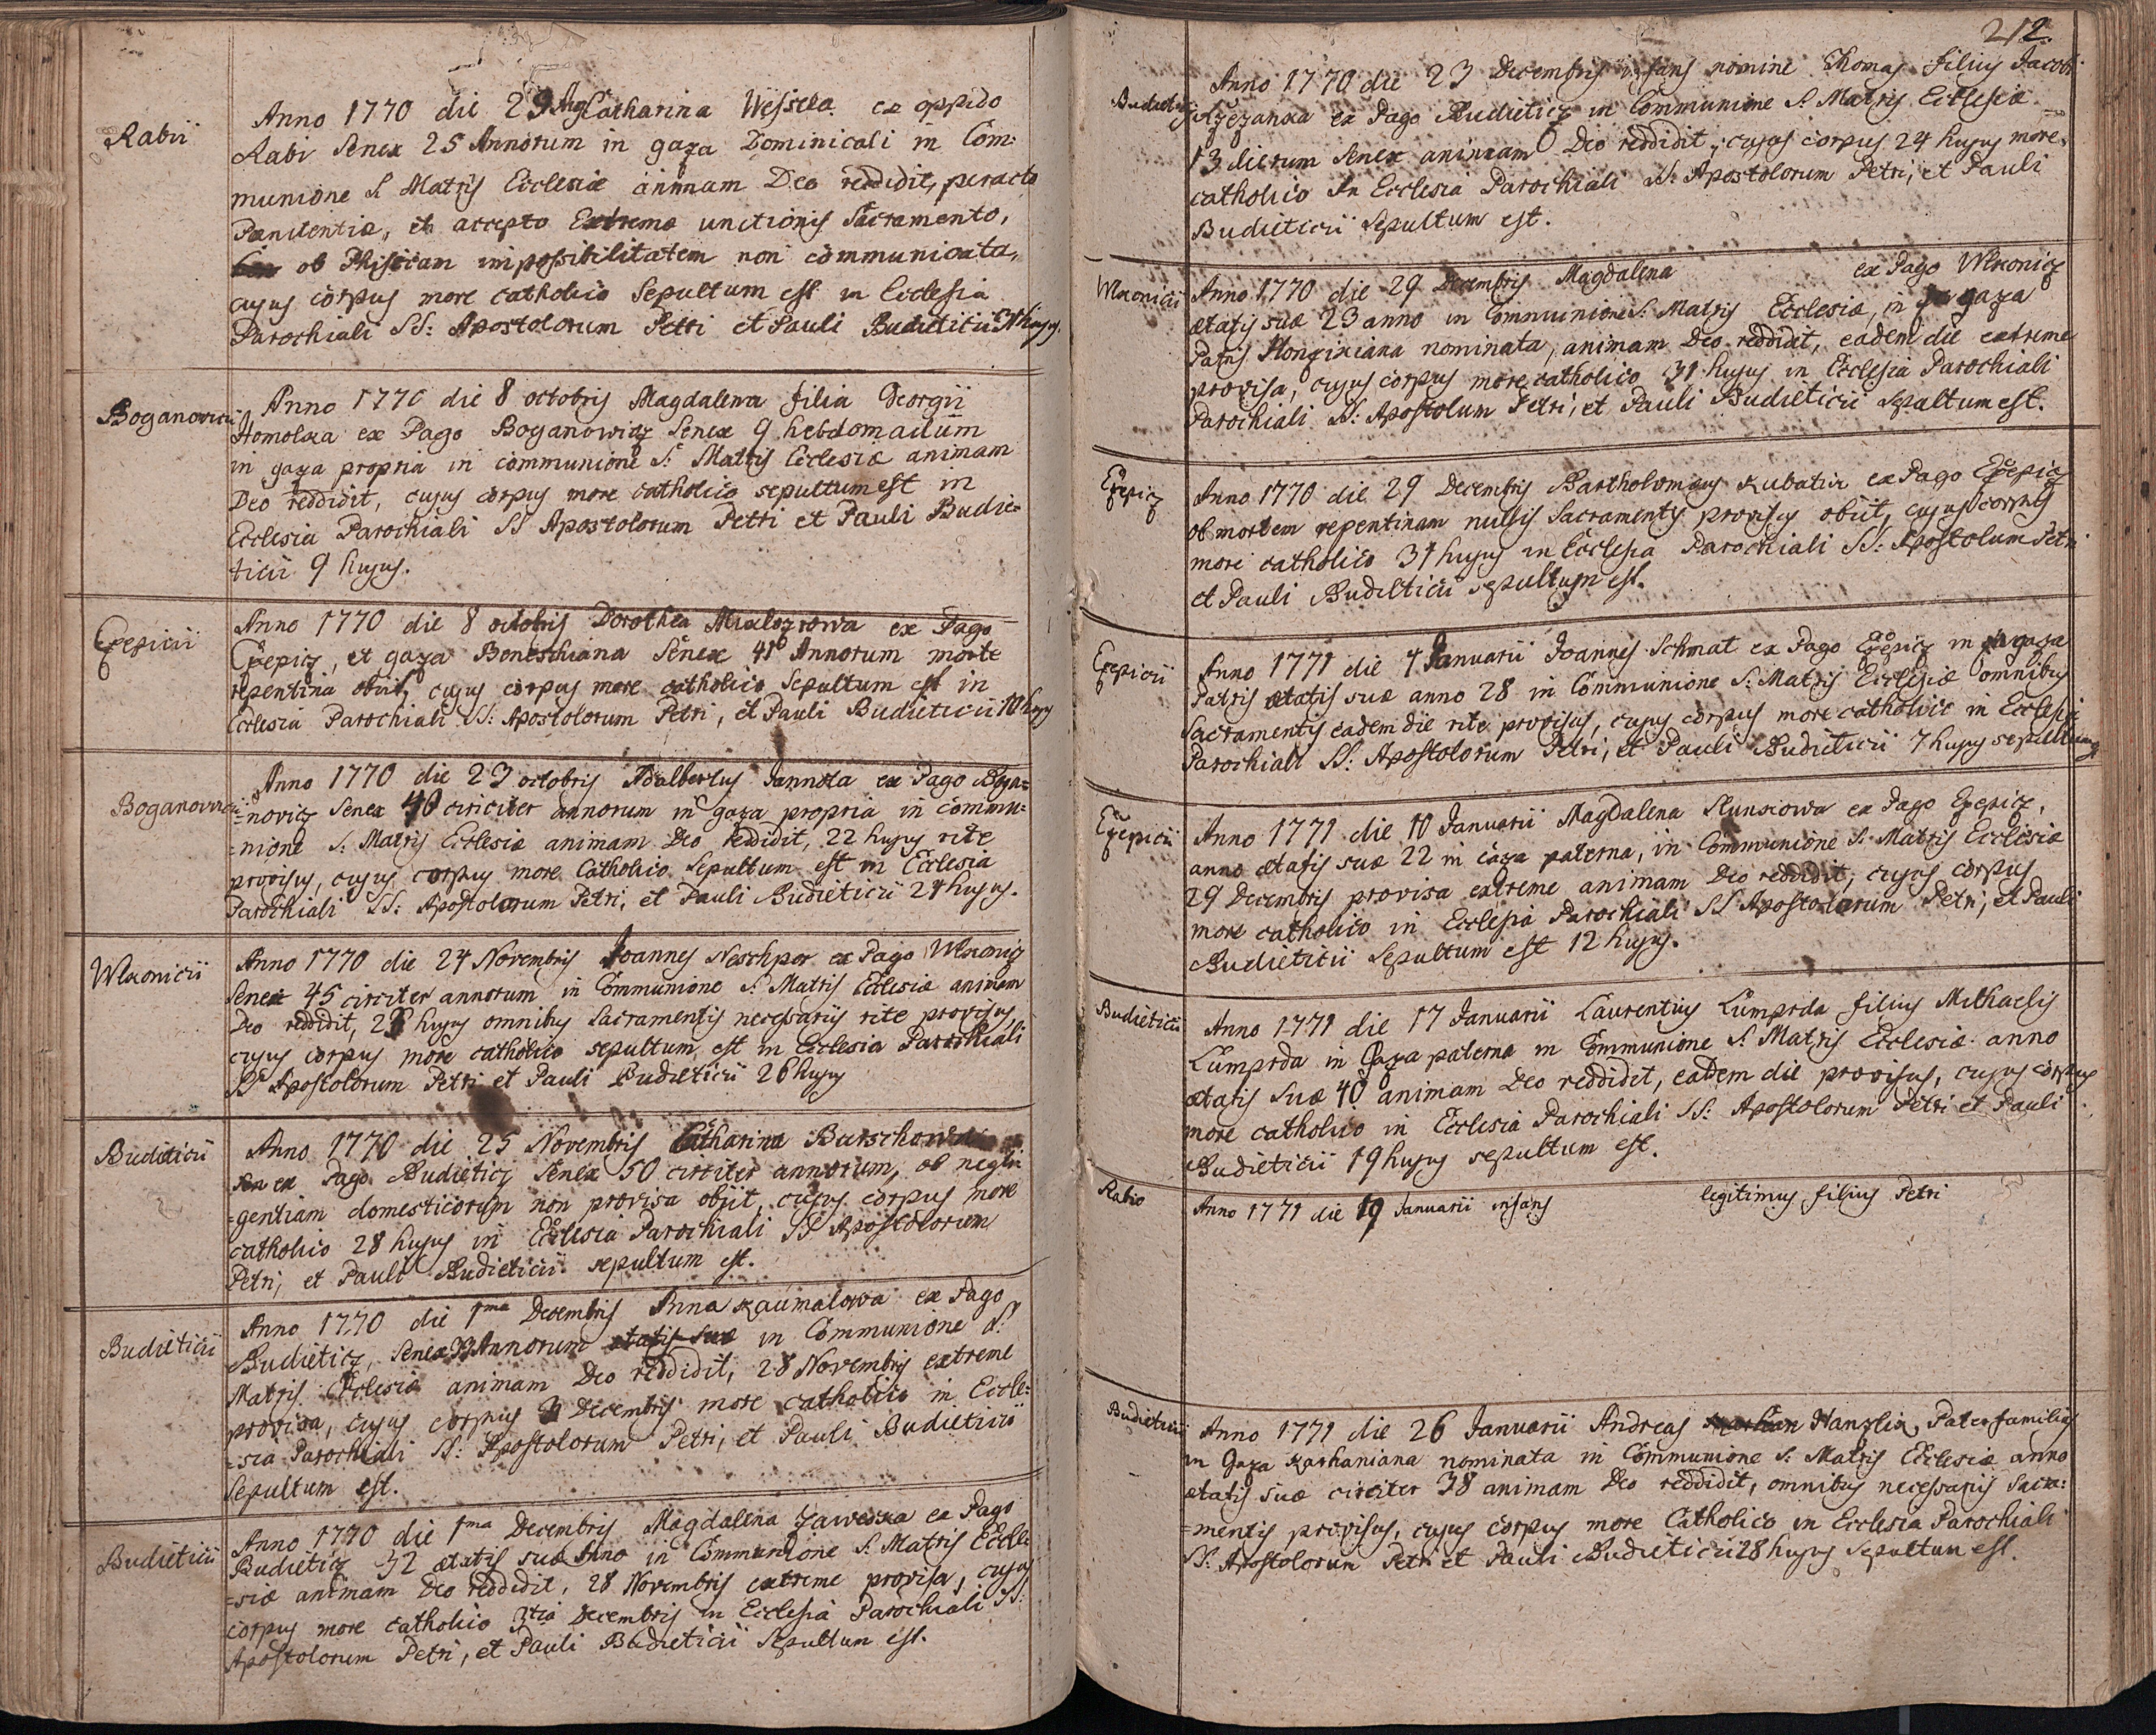 Rabii
Anno 1770 die 29 Aug Catharina Wessela ex oppido
Rabi Senex 25 Annorum in gaza Dominicali in Com:
munione S. Matris Ecclesiæ animam Deo reddidit, peracto
Pænitentiæ, et accepto Extremæ unctionis Sacramento,
ob Phisicam impossibilitatem non communicata,
cujus corpus more catholico Sepultum est in Ecclesia
Parochiali SS: Apostolorum Petri et Pauli Budieticii 31 hujus.
Boganowicii
Anno 1770 die 8 octobris Magdalena filia Georgii
Homolka ex Pago Boganowicz Senex 9 hebdomadum
in gaza propria in communione S. Matris Ecclesiæ animam
Deo reddidit, cujus corpus more catholico sepultum est in
Ecclesia Parochiali SS Apostolorum Petri et Pauli Budie-
ticii 9 hujus.
Czepicii
Anno 1770 die 8 octobris Dorothea ex Pago
Czepicz, et gaza Beneschiana Senex 41 Annorum morte
repentina obiit, cujus corpus more catholico Sepultum est in
Ecclesia Parochiali SS: Apostolorum Petri, et Pauli Budieticii 10 hujus
Boganowicii
Anno 1770 die 23 octobris Adalbertus Jannota ex Pago Boga=
=novicz Senex 40 circiter annorum in gaza propria in commu=
=nione S: Matris Ecclesiæ animam Deo reddidit, 22 hujus rite
provisus, cujus corpus more Catholico Sepultum est in Ecclesia
Parochiali SS: Apostolorum Petri, et Pauli Budieticii 24 hujus.
Wlkonicii
Anno 1770 die 24 Novembris Joannes Neschpor ex Pago Wlkonicz
Senex 45 circiter annorum in Communione S. Matris Ecclesiæ animam
Deo reddidit, hujus omnibus Sacramentis necessariis rite provisus,
cujus corpus more catholico sepultum est in Ecclesia Parochiali
SS Apostolorum Petri et Pauli Budieticii 26 hujus
Budieticii
Anno 1770 die 25 Novembris Catharina Burschowa
ex Pago Budieticz Senex 50 circiter annorum, ob negli
=gentiam domesticorum non provisa obiit, cujus corpus more
catholico 28 hujus in Ecclesia Parochiali SS Apostolorum
Petri, et Pauli Budieticii sepultum est.
Budieticii
Anno 1770 die 1ma Decembris Anna Kaumalowa ex Pago
Budieticz, Senex 33 Annorum ætatis suæ in Communione S.
Matris Ecclesiæ animam Deo reddidit, 28 Novembris extreme
provisa, cujus corpus 3 Decembris more catholico in Eccle=
=sia Parochiali SS: Apostolorum Petri, et Pauli Budieticii
Sepultum est.
Budieticii
Anno 1770 die 1ma Decembris Magdalena Zaweska ex Pago
Budieticz 32 ætatis suæ Anno in Communione S. Matris Eccle
=siæ animam Deo reddidit, 28 Novembris extreme provisa, cujus
corpus more catholico 3tia Decembris in Ecclesia Parochiali SS:
Apostolorum Petri, et Pauli Budieticii Sepultum est.
212.
Budieticii
Anno 1770 die 23 Decembris infans nomine Thomas filius Jacobi
ex Pago Budieticz in Communione S. Matris Ecclesiæ
13 dierum Senex animam Deo reddidit, cujus corpus 24 hujus more
catholico in Ecclesia Parochiali SS: Apostolorum Petri, et Pauli
Budieticii Sepultum est.
Wlkonicii
Anno 1770 die 29 Decembris Magdalena ex Pago Wlkonicz
ætatis suæ 23 anno in Communione S. Matris Ecclesiæ, in gaza
Patris nominata, animam Deo reddidit, eadem die extreme
provisa, cujus corpus more catholico 31 hujus in Ecclesia Parochiali
Parochiali SS: Apostolum Petri, et Pauli Budieticii Sepultum est.
Czepicz
Anno 1770 die 29 Decembris Bartholomæus Kubatur ex Pago Czepicz
ob mortem repentinam nullis Sacramentis provisus obiit, cujus corpus
more catholico 31 hujus in Ecclesia Parochiali SS: Apostolum Petri
et Pauli Budieticii sepultum est.
Czepicii
Anno 1771 die 4 Januarii Joannes Schmat ex Pago Czepicz in gaza
Patris ætatis suæ anno 28 in Communione S. Matris Ecclesiæ omnibus
Sacramentis eadem die rite provisus, cujus corpus more catholico in Ecclesia
Parochiali SS: Apostolorum Petri, et Pauli Budieticii 7 hujus sepultum
Czepicii
Anno 1771 die 10 Januarii Magdalena Slunkowa ex Pago Czepicz,
anno ætatis suæ 22 in caza paterna, in Communione S. Matris Ecclesiæ
29 Decembris provisa extreme animam Deo reddidit, cujus corpus
more catholico in Ecclesia Parochiali SS Apostolorum Petri, et Pauli
Budieticii Sepultum est 12 hujus.
Budieticii
Anno 1771 die 17 Januarii Laurentius Lumprda filius Michaelis
Lumprda in Gaza paterna in Communione S. Matris Ecclesiæ anno
ætatis suæ 40 animam Deo reddidit, eadem die provisus, cujus corpus
more catholico in Ecclesia Parochiali SS: Apostolorum Petri et Pauli
Budieticii 19 hujus sepultum est.
Rabio
Anno 1771 die 19 Januarii infans legitimus filius Petri
Budieticii
Anno 1771 die 26 Januarii Andreas Hanzlik Pater familias
in Gaza Karhaniana nominata in Communione S. Matris Ecclesiæ anno
ætatis suæ circiter 38 animam Deo reddidit, omnibus necessariis Sacra:
=mentis provisus, cujus corpus more Catholico in Ecclesia Parochiali
SS: Apostolorum Petri et Pauli Budieticii 28 hujus Sepultum est.